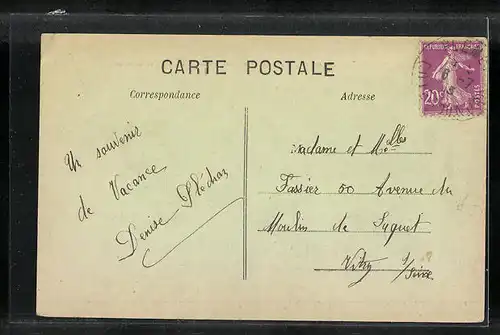 CARTE POSTALE
Correspondance
Adresse
20c
POSTES
Un souvenir
de Vacance
Denise
Madame et Melles
Tassier 50 Avenue du
Moulin de Saquet
Vitry s/Seine